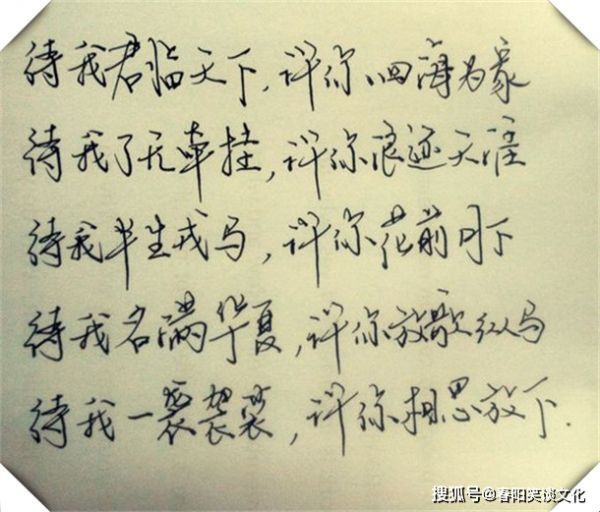 待我君临天下,许你四海为家
待我了无牵挂,许你浪迹天涯
待我半生戎马,许你花前月下
待我名满华夏,许你放歌纵马
待我一袭袈裟,许你相思放下.
搜狐号@春阳笑谈文化